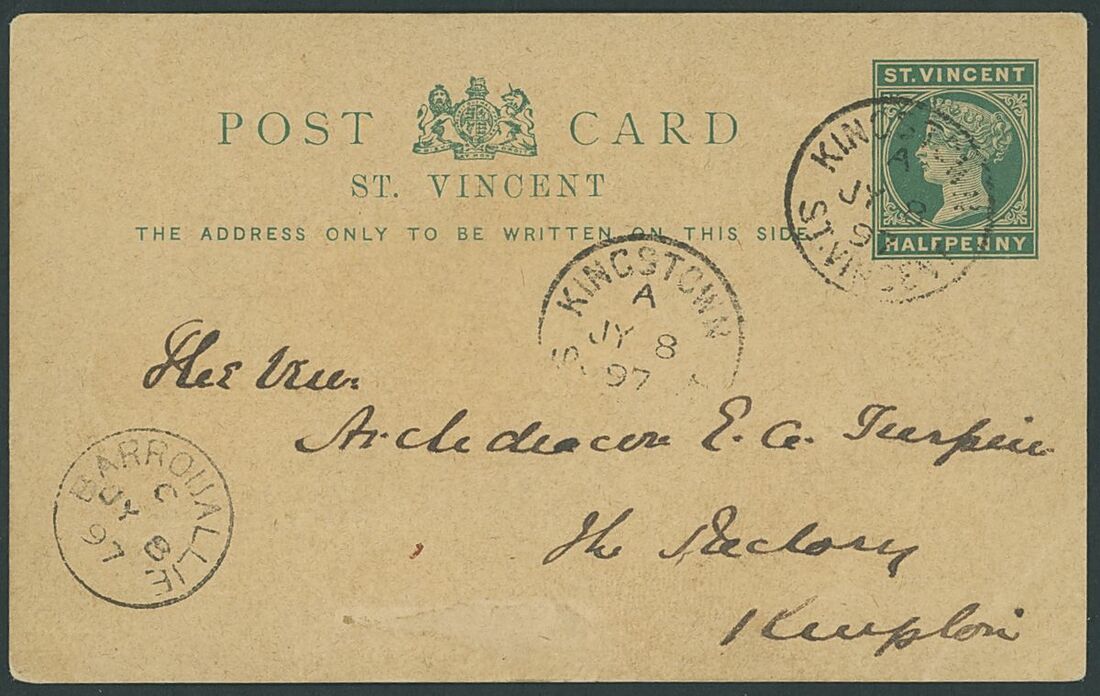 POST CARD
ST. VINCENT
THE ADDRESS ONLY TO BE WRITTEN ON THIS SIDE
ST. VINCENT
HALFPENNY
KINGSTOWN
A
JY 8
97
ST. VINCENT
KINGSTOWN
A
JY 8
97
The Ven.
Archdeacon E. A. Turpin
The Rectory
BARROUALLIE
C
JY 8
97